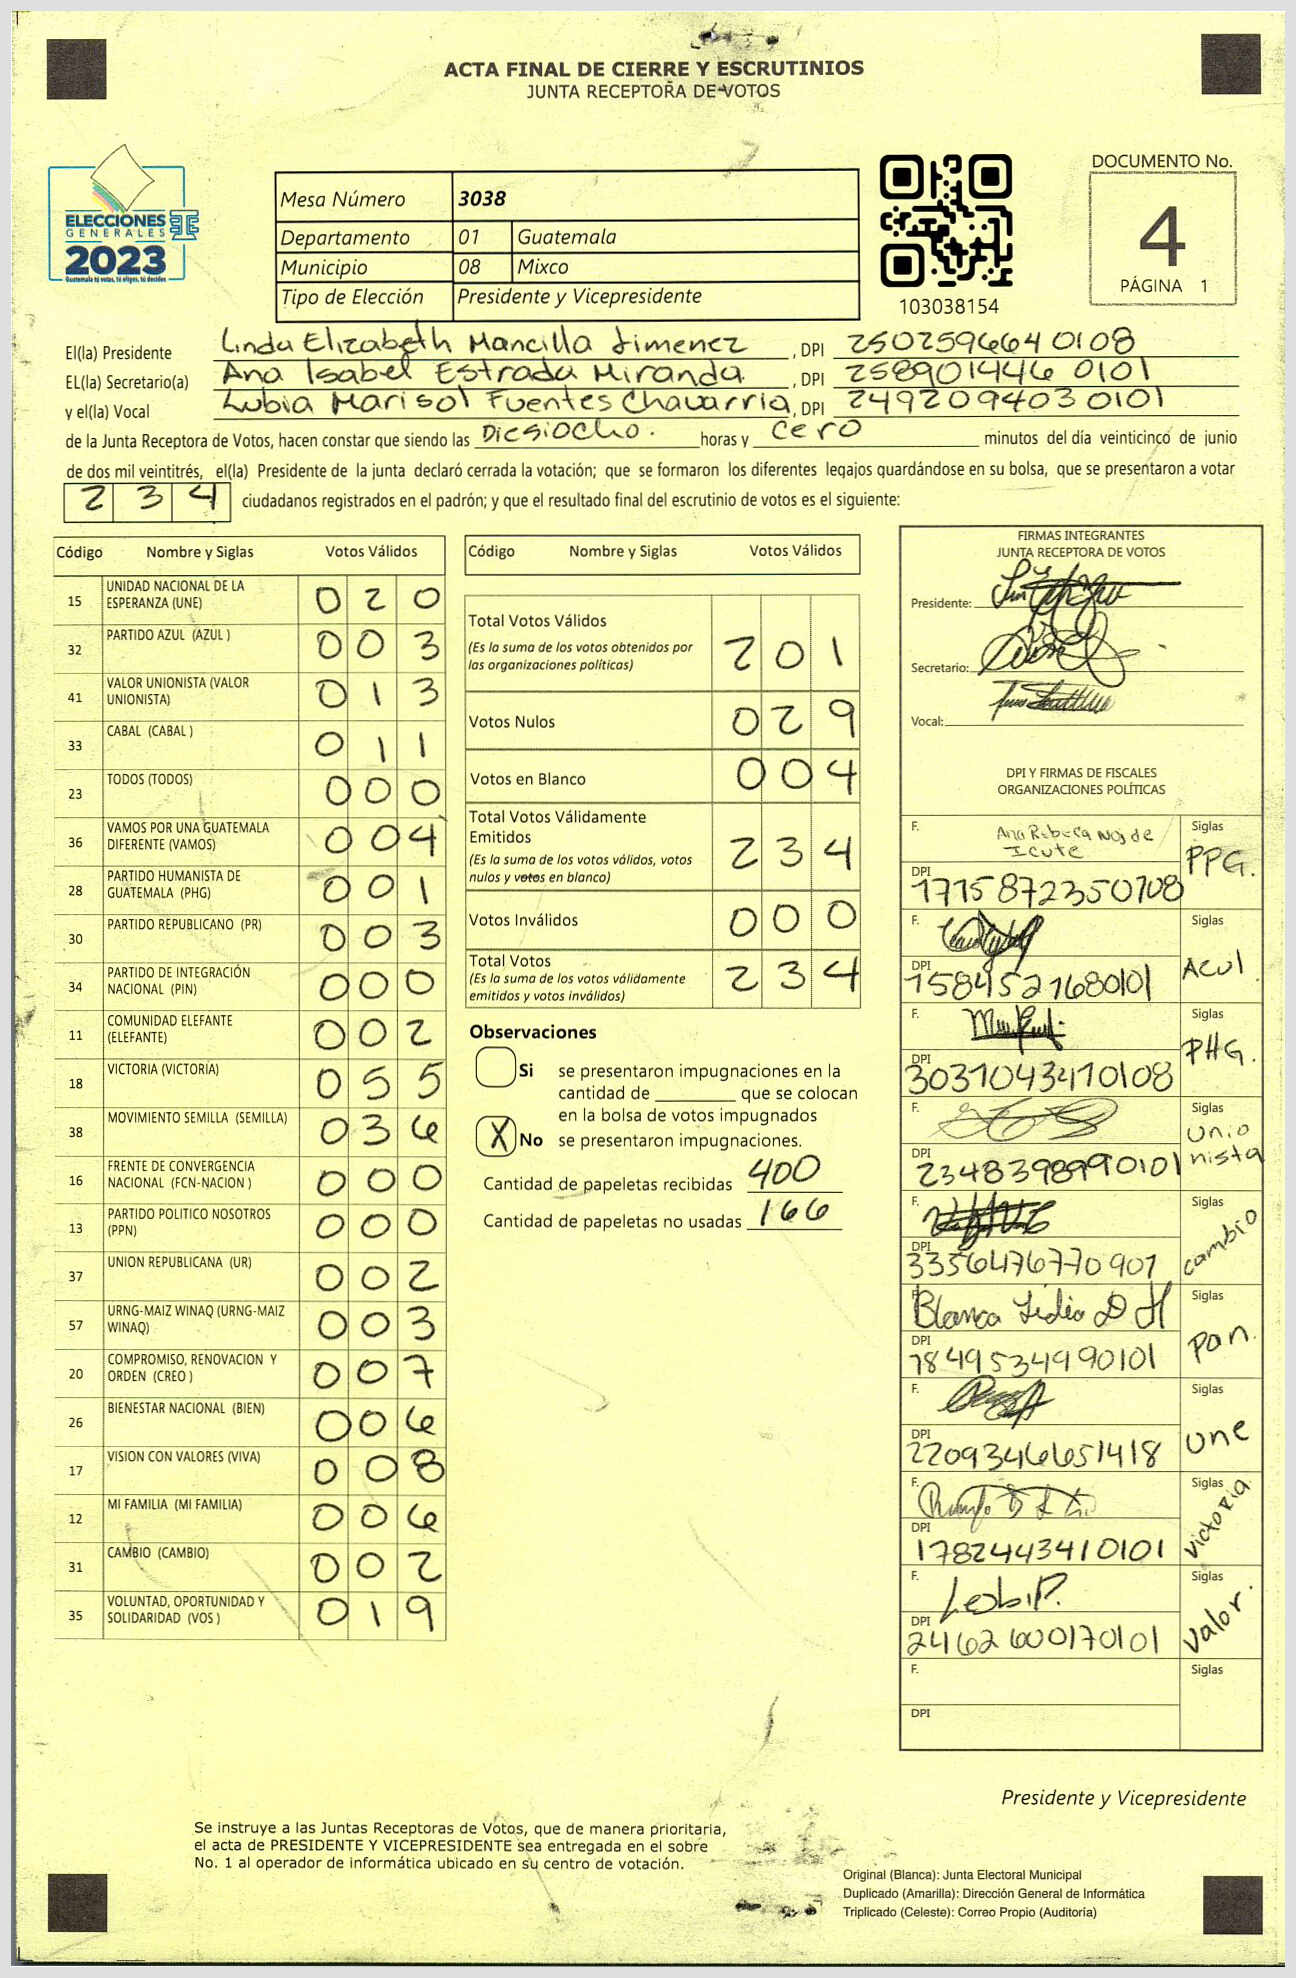 ACTA FINAL DE CIERRE Y ESCRUTINIOS
JUNTA RECEPTORA DE VOTOS
ELECCIONES
GENERALES
2023
Guatemala tú votas, tú eliges, tú decides
Mesa Número 3038
Departamento 01 Guatemala
Municipio 08 Mixco
Tipo de Elección Presidente y Vicepresidente
103038154
DOCUMENTO No.
4
PÁGINA 1
El(la) Presidente Linda Elizabeth Mancilla Jimenez, DPI 2502596640108
EL(la) Secretario(a) Ana Isabel Estrada Miranda, DPI 2589014460101
y el(la) Vocal Lubia Marisol Fuentes Chavarria, DPI 2492094030101
de la Junta Receptora de Votos, hacen constar que siendo las Diesiocho. horas y cero minutos del día veinticinco de junio
de dos mil veintitrés, el(la) Presidente de la junta declaró cerrada la votación; que se formaron los diferentes legajos quardándose en su bolsa, que se presentaron a votar
234 ciudadanos registrados en el padrón; y que el resultado final del escrutinio de votos es el siguiente:
Código Nombre y Siglas Votos Válidos
15 UNIDAD NACIONAL DE LA ESPERANZA (UNE) 020
32 PARTIDO AZUL (AZUL ) 003
41 VALOR UNIONISTA (VALOR UNIONISTA) 013
33 CABAL (CABAL ) 011
23 TODOS (TODOS) 000
36 VAMOS POR UNA GUATEMALA DIFERENTE (VAMOS) 004
28 PARTIDO HUMANISTA DE GUATEMALA (PHG) 001
30 PARTIDO REPUBLICANO (PR) 003
34 PARTIDO DE INTEGRACIÓN NACIONAL (PIN) 000
11 COMUNIDAD ELEFANTE (ELEFANTE) 002
18 VICTORIA (VICTORIA) 055
38 MOVIMIENTO SEMILLA (SEMILLA) 036
16 FRENTE DE CONVERGENCIA NACIONAL (FCN-NACION ) 000
13 PARTIDO POLITICO NOSOTROS (PPN) 000
37 UNION REPUBLICANA (UR) 002
57 URNG-MAIZ WINAQ (URNG-MAIZ WINAQ) 003
20 COMPROMISO, RENOVACION Y ORDEN (CREO ) 007
26 BIENESTAR NACIONAL (BIEN) 006
17 VISION CON VALORES (VIVA) 008
12 MI FAMILIA (MI FAMILIA) 006
31 CAMBIO (CAMBIO) 002
35 VOLUNTAD, OPORTUNIDAD Y SOLIDARIDAD (VOS ) 019
Código Nombre y Siglas Votos Válidos
Total Votos Válidos 201
(Es la suma de los votos obtenidos por
las organizaciones políticas)
Votos Nulos 029
Votos en Blanco 004
Total Votos Válidamente
Emitidos 234
(Es la suma de los votos válidos, votos
nulos y votos en blanco)
Votos Inválidos 000
Total Votos 234
(Es la suma de los votos válidamente
emitidos y votos inválidos)
Observaciones
Si se presentaron impugnaciones en la
cantidad de que se colocan
en la bolsa de votos impugnados
X No se presentaron impugnaciones.
Cantidad de papeletas recibidas 400
Cantidad de papeletas no usadas 166
FIRMAS INTEGRANTES
JUNTA RECEPTORA DE VOTOS
Presidente:
Secretario:
Vocal:
DPI Y FIRMAS DE FISCALES
ORGANIZACIONES POLÍTICAS
F. Ana Rebeca Noj de Icute Siglas PPG.
DPI 1715872350708
F. Siglas Azul
DPI 1584521680101
F. Siglas PHG.
DPI 3031043410108
F. Siglas Unionista
DPI 2348398990101
F. Siglas cambio
DPI 3356476770901
F. Blanca Lidia D H Siglas pan.
DPI 1849534990101
F. Siglas une
DPI 2209346651418
F. Siglas victoria
DPI 1782443410101
F. Siglas valor.
DPI 2462600170101
F. Siglas
DPI
Presidente y Vicepresidente
Se instruye a las Juntas Receptoras de Votos, que de manera prioritaria,
el acta de PRESIDENTE Y VICEPRESIDENTE sea entregada en el sobre
No. 1 al operador de informática ubicado en su centro de votación.
Original (Blanca): Junta Electoral Municipal
Duplicado (Amarilla): Dirección General de Informática
Triplicado (Celeste): Correo Propio (Auditoría)